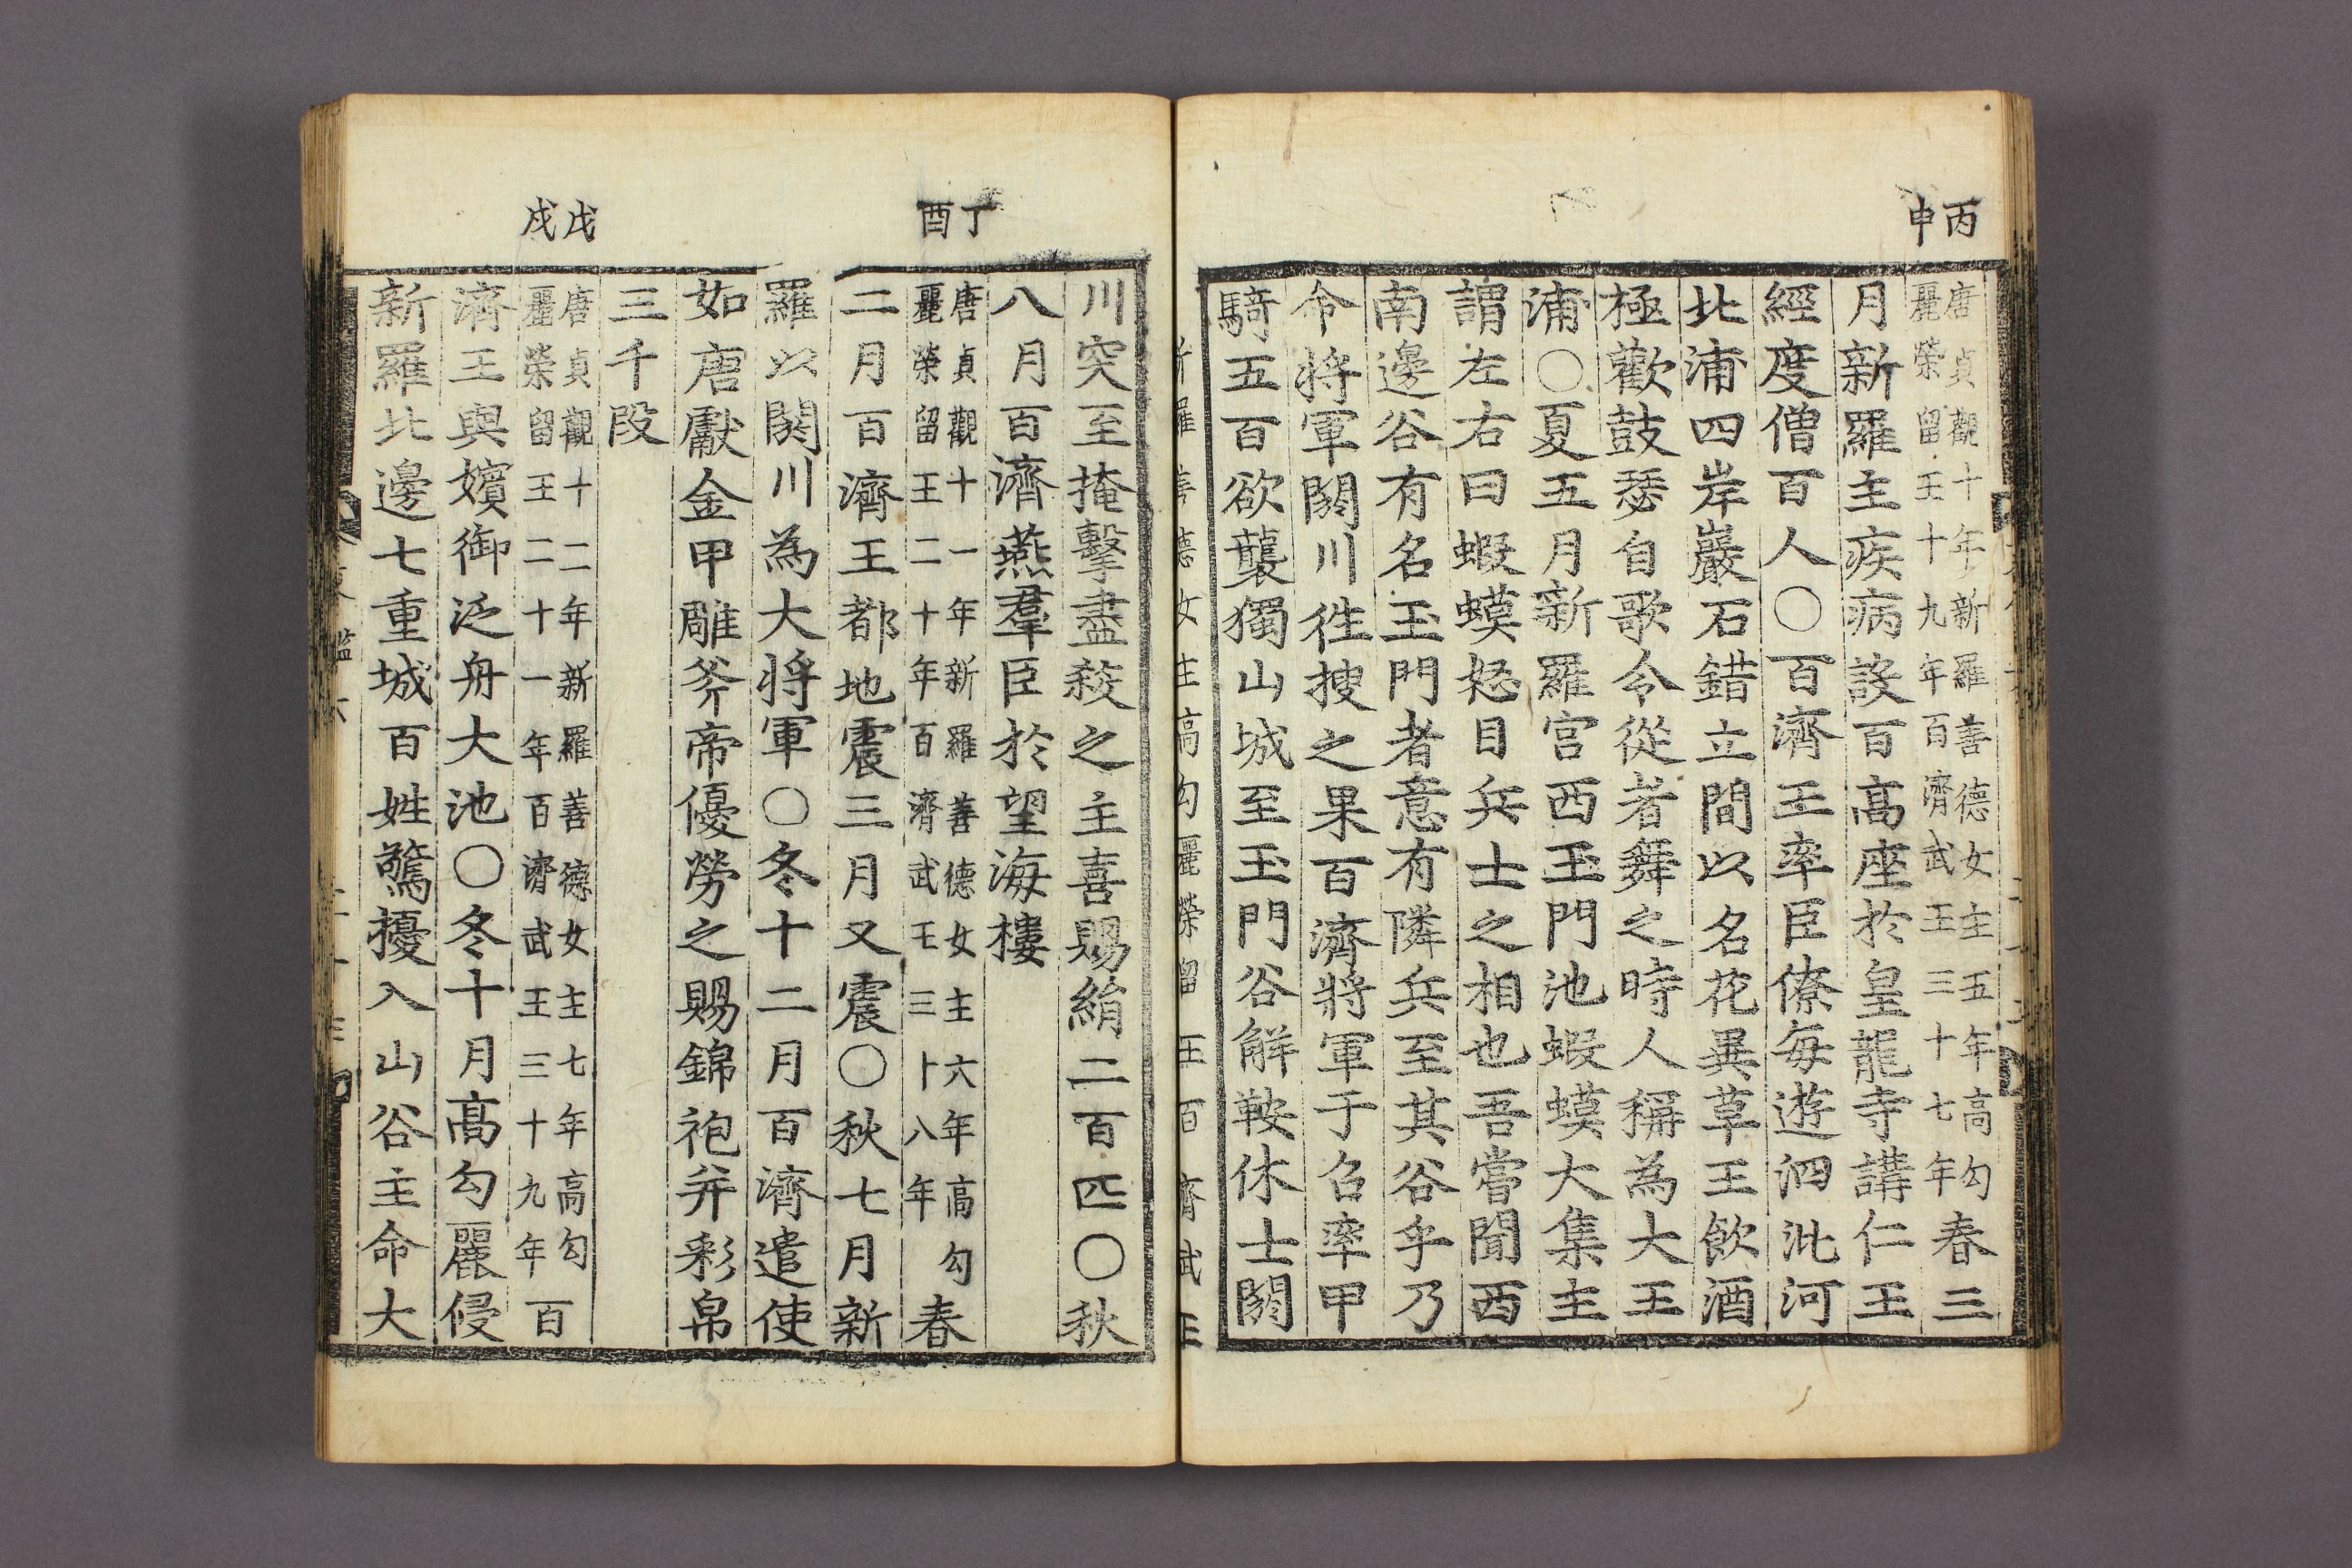 丙申
唐貞觀十年新羅善德女主五年高勾
麗榮留王十九年百濟武王三十七年
春三
月新羅主疾病設百高座於皇龍寺講仁王
經度僧百人○百濟王率臣僚每遊泗沘河
北浦四岸巖石錯立間以名花異草王飮酒
極歡鼓瑟自歌令從者舞之時人稱爲大王
浦○夏五月新羅宮西玉門池蝦蟆大集主
謂左右曰蝦蟆怒目兵士之相也吾嘗聞西
南邊谷有名玉門者意有隣兵至其谷乎乃
令將軍閼川徃搜之果百濟將軍于召率甲
騎五百欲襲獨山城至玉門谷解鞍休士閼
羅善德女主高勾麗榮留王百濟武王
川突至掩擊盡殺之主喜賜絹二百匹○秋
八月百濟燕羣臣於望海樓
丁酉
唐貞觀十一年新羅善德女主六年高勾
麗榮留王二十年百濟武王三十八年
春
二月百濟王都地震三月又震○秋七月新
羅以閼川為大將軍○冬十二月百濟遣使
如唐獻金甲雕斧帝優勞之賜錦袍幷彩帛
三千段
戊戌
唐貞觀十二年新羅善德女主七年高勾
麗榮留王二十一年百濟武王三十九年
百
濟王與嬪御泛舟大池○冬十月高勾麗侵
新羅北邊七重城百姓驚擾入山谷主命大